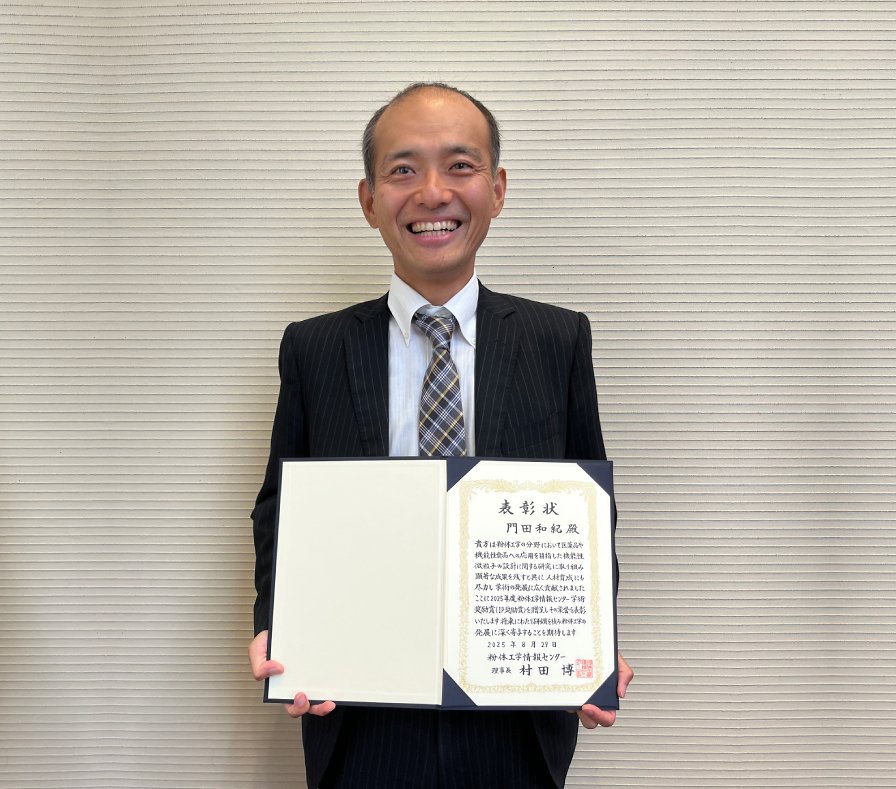 表彰状
門田和紀 殿
貴方は粉体工学の分野において医薬品や
機能性食品への応用を目指した機能性
微粒子の設計に関する研究に取り組み
顕著な成果を残すと共に人材育成にも
尽力し学術の発展に広く貢献されました
ここに2025年度粉体工学情報センター学術
奨励賞(IP奨励賞)を贈呈しその栄誉を表彰
いたします 将来にわたり研鑽を積み粉体工学の
発展に深く寄与することを期待します
2025年8月29日
粉体工学情報センター
理事長 村田 博